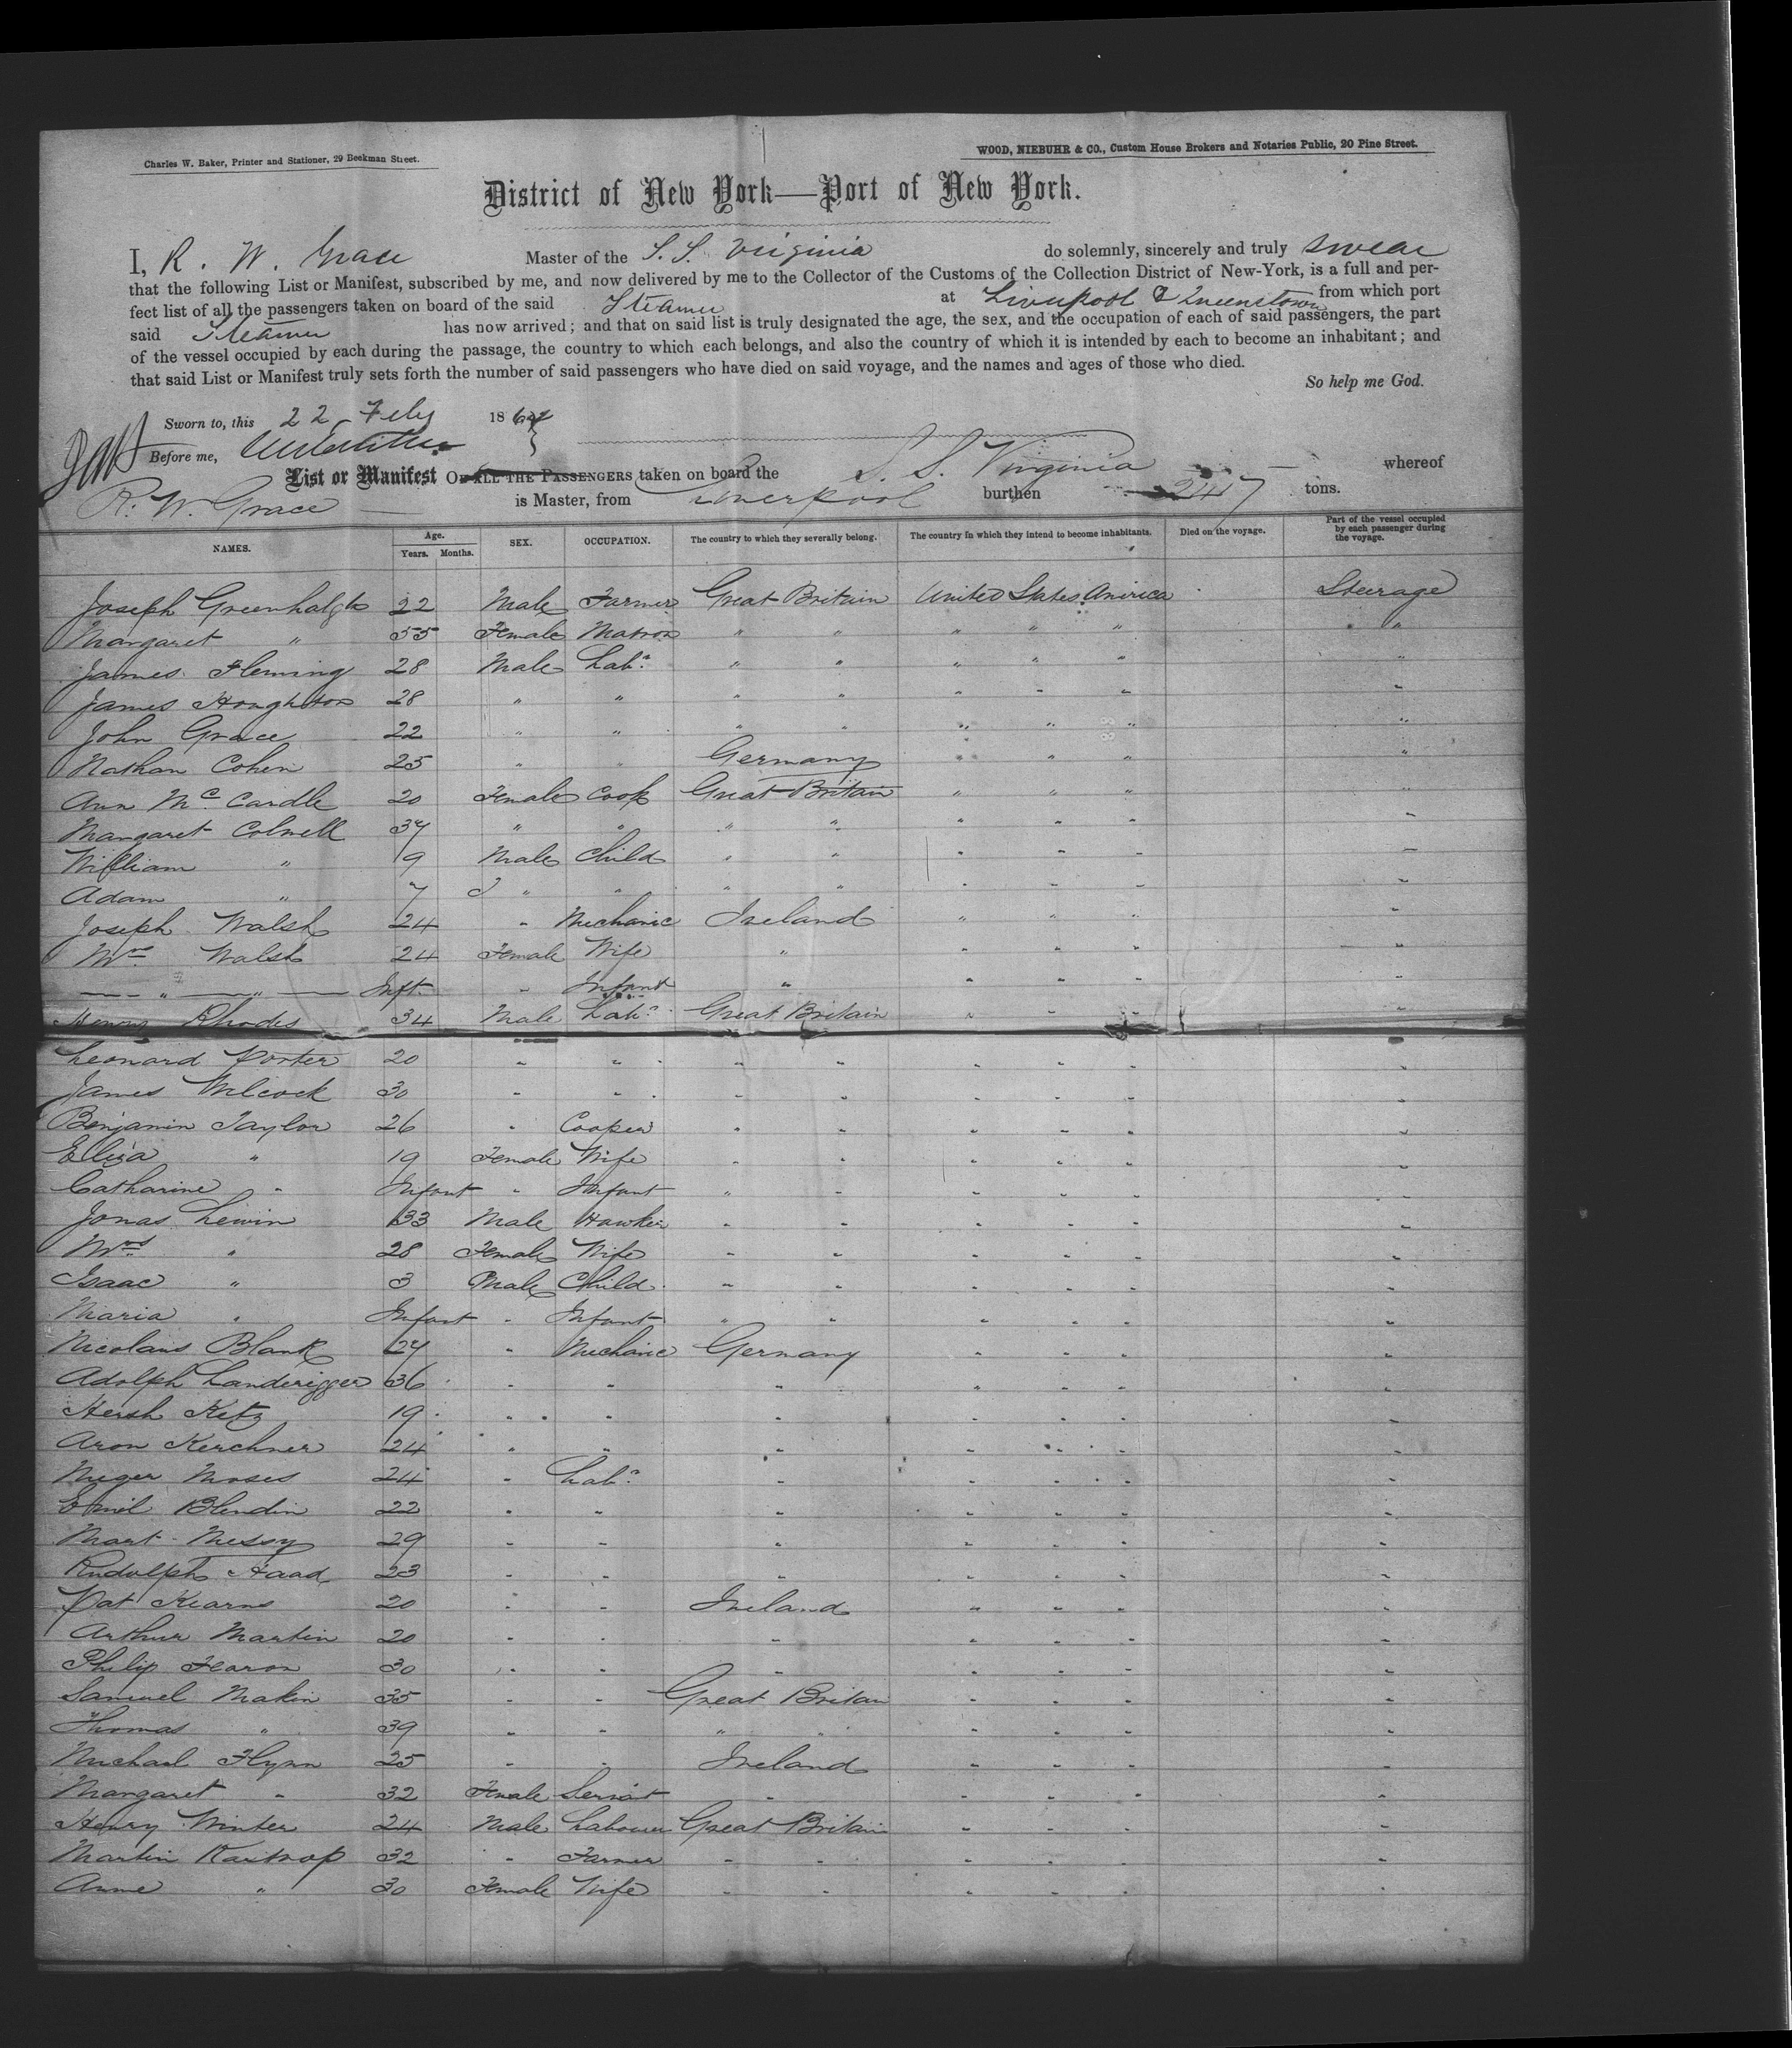 Charles W. Baker, Printer and Stationer, 29 Beekman Street.
WOOD, NIEBUHR & CO., Custom House Brokers and Notaries Public, 20 Pine Street.
District of New York—Port of New York.
I, R. W. Grace Master of the S. S. Virginia do solemnly, sincerely and truly swear
that the following List or Manifest, subscribed by me, and now delivered by me to the Collector of the Customs of the Collection District of New-York, is a full and per-
fect list of all the passengers taken on board of the said Steamer at Liverpool & Queenstown from which port
said Steamer has now arrived; and that on said list is truly designated the age, the sex, and the occupation of each of said passengers, the part
of the vessel occupied by each during the passage, the country to which each belongs, and also the country of which it is intended by each to become an inhabitant; and
that said List or Manifest truly sets forth the number of said passengers who have died on said voyage, and the names and ages of those who died.
So help me God.
Sworn to, this 22 Feby 186
Before me,
List or Manifest OF ALL THE PASSENGERS taken on board the S. S. Virginia whereof
R. W. Grace is Master, from Liverpool burthen 2417 tons.
NAMES. Age. Years. Months. SEX. OCCUPATION. The country to which they severally belong. The country in which they intend to become inhabitants. Died on the voyage. Part of the vessel occupied by each passenger during the voyage.
Joseph Greenhalgh 22 Male Farmer Great Britain United States America Steerage
Margaret " 55 Female Matron " " " " " "
James Fleming 28 Male Labr " " " " " "
James Houghton 28 " " " " " " " "
John Grace 22 " " " " " " " "
Nathan Cohen 25 " " Germany " " " "
Ann McCardle 20 Female Cook Great Britain " " " "
Margaret Colwell 37 " " " " " " " "
William " 9 Male Child " " " " " "
Adam " 7 " " " " " " " "
Joseph Walsh 24 " Mechanic Ireland " " " "
Mrs Walsh 24 Female Wife " " " " "
" " Inft. " Infant " " " " "
Henry Rhodes 34 Male Labr Great Britain " " " "
Leonard Porter 20 " " " " " " " "
James Wilcock 30 " " " " " " " "
Benjamin Taylor 26 " Cooper " " " " " "
Eliza " 19 Female Wife " " " " " "
Catharine " Infant " Infant " " " " " "
Jonas Lewin 33 Male Hawker " " " " " "
Mrs " 28 Female Wife " " " " " "
Isaac " 3 Male Child " " " " " "
Maria " Infant " Infant " " " " " "
Nicolaus Blank 27 " Mechanic Germany " " " "
Adolph Landerigger 36 " " " " " " "
Hersh Ketz 19 " " " " " " "
Aron Kerchner 24 " " " " " " "
Meger Moses 24 " Labr " " " " "
Emil Blendin 22 " " " " " " "
Mart Messy 29 " " " " " " "
Rudolph Haad 23 " " " " " " "
Pat Kearns 20 " " Ireland " " " "
Arthur Martin 20 " " " " " " "
Philip Fearon 30 " " " " " " "
Samuel Makin 35 " " Great Britain " " " "
Thomas " 39 " " " " " " " "
Michael Flynn 25 " " Ireland " " " "
Margaret " 32 Female Servant " " " " "
Henry Winter 24 Male Labourer Great Britain " " " "
Martin Kaxtrop 32 " Farmer " " " " " "
Anne " 30 Female Wife " " " " " "